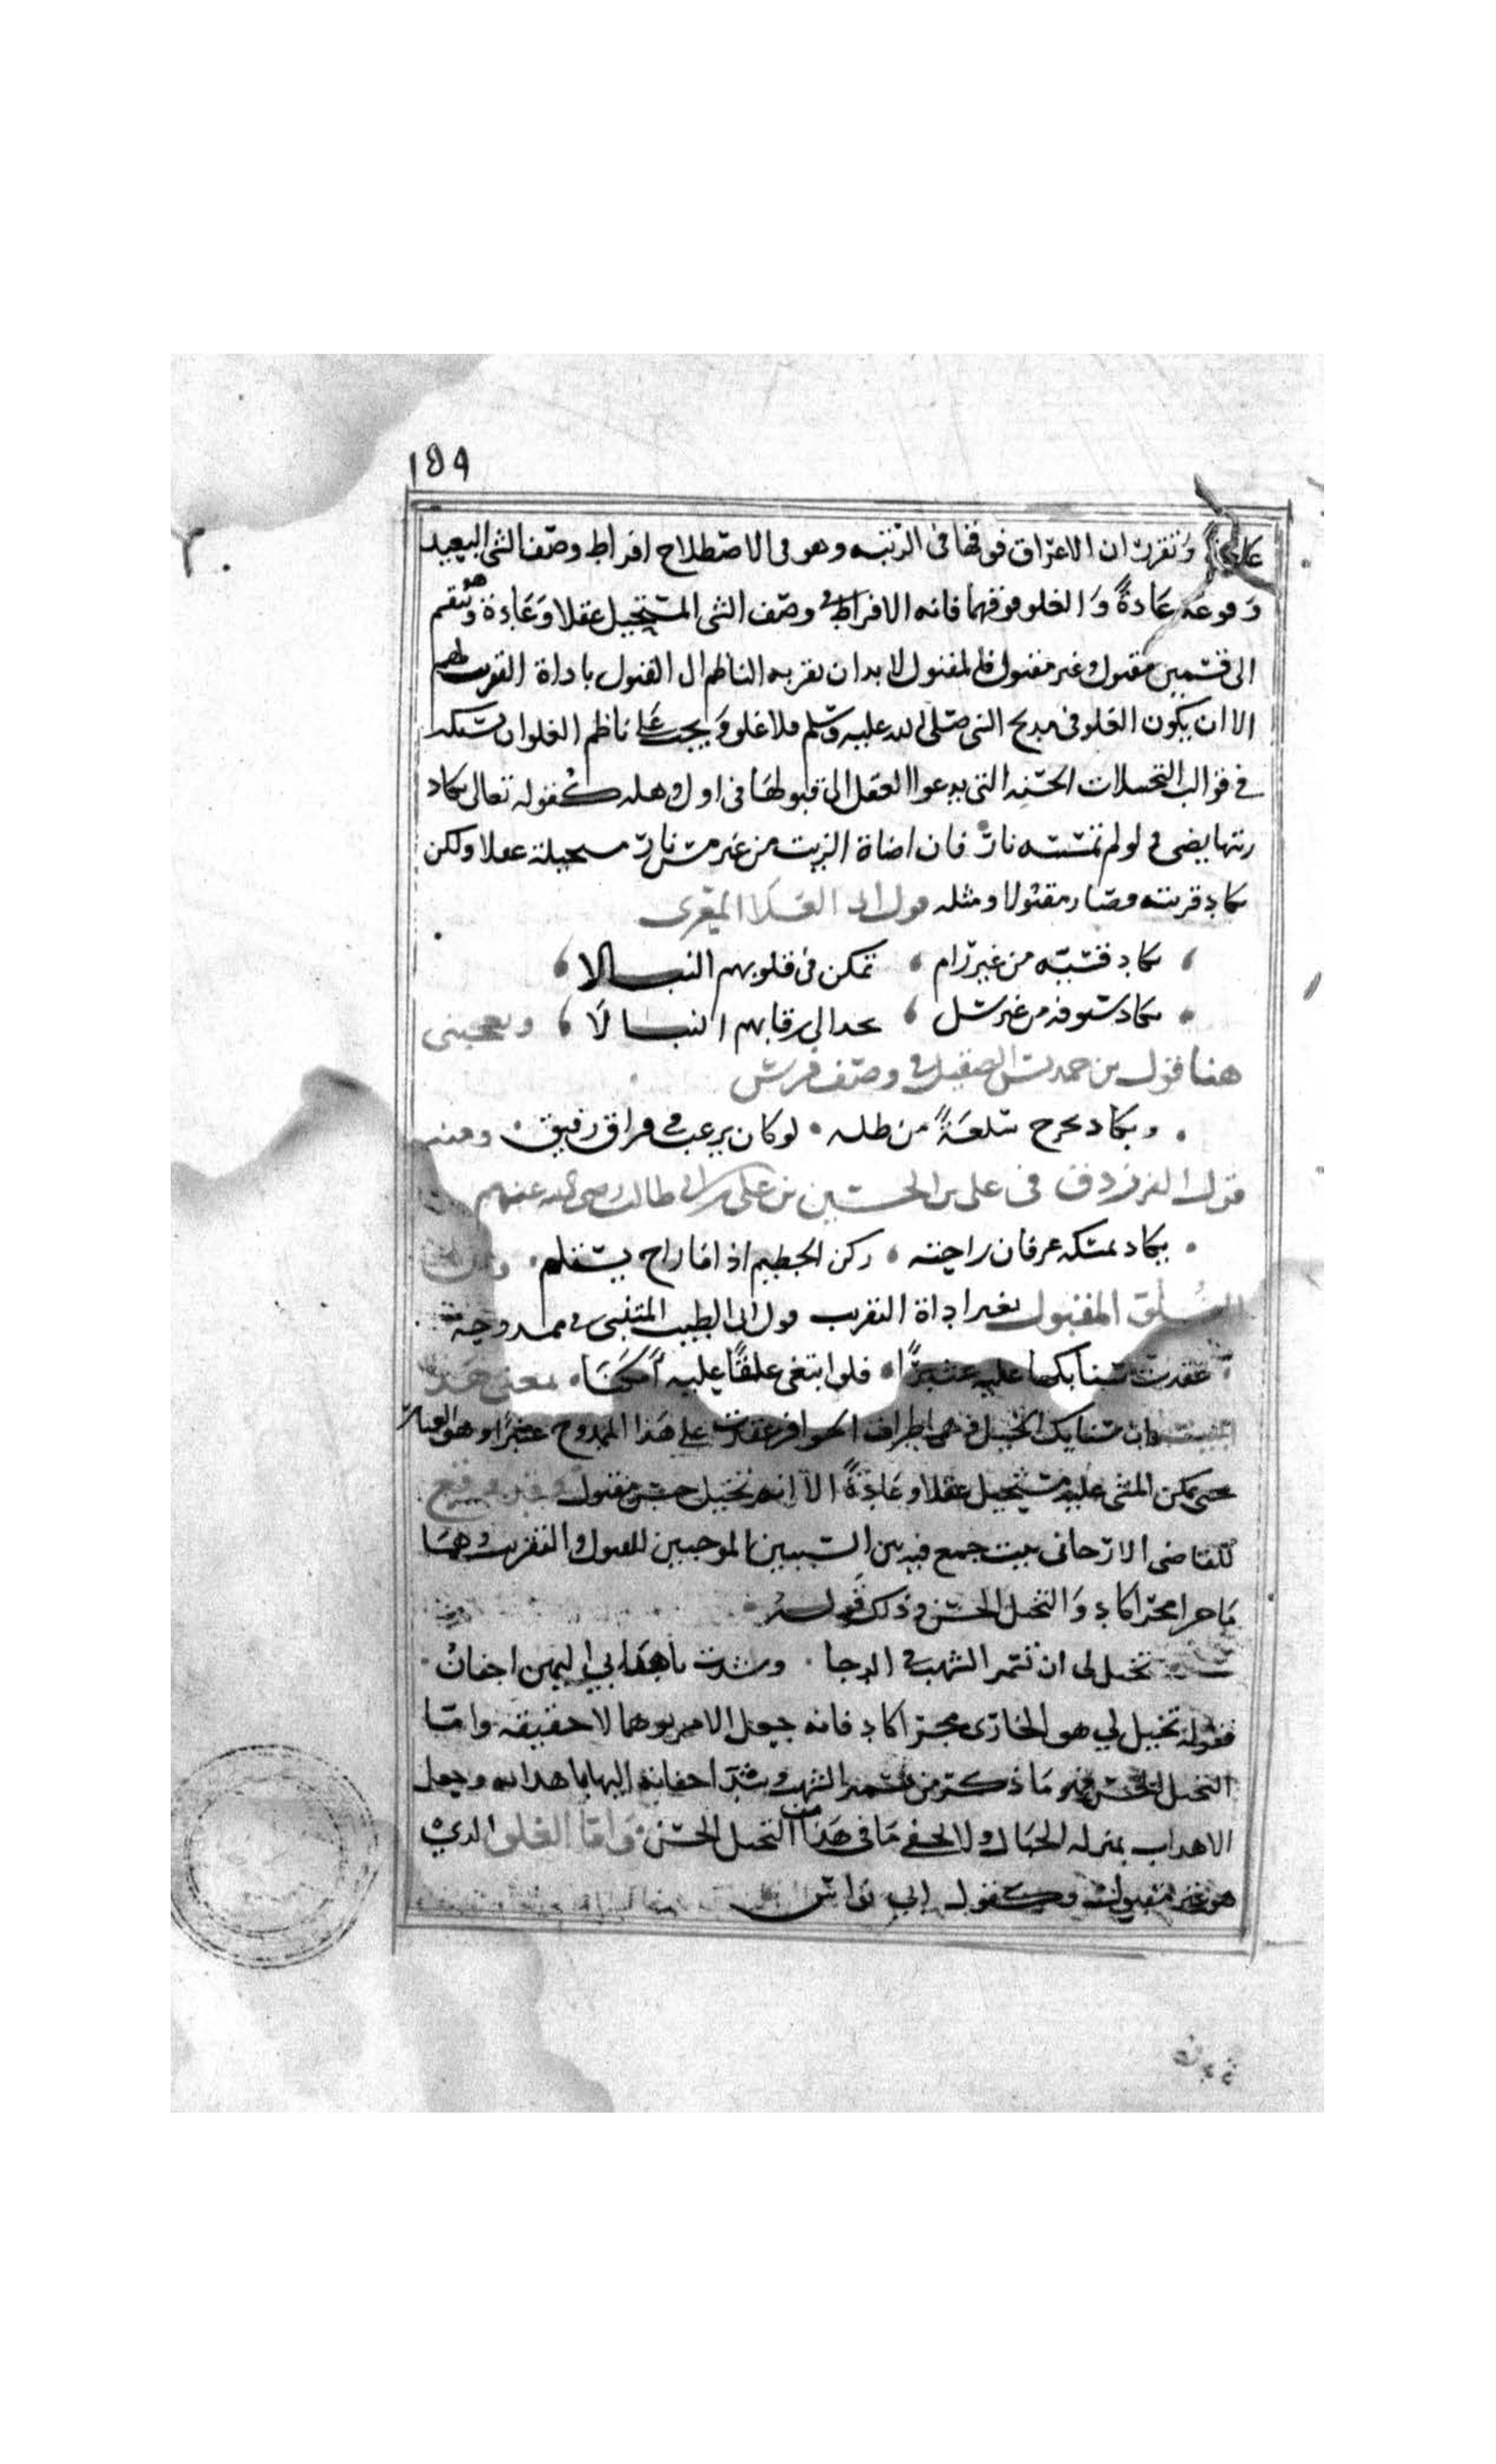 ١٥٩
وتقرر ان الاغراق فوقها فى الرتبه وهو فى الاصطلاح افراط وصف الشى البعيد
وقوعه عادةً وَالغلو فوقهما فانه الافراط فى وصف الشى المستحيل عقلا وَعَادة وهو ينقسم
الى قسمين مقبول وغير مقبول فالمقبول لا بد ان يقربه الناظم الى القبول باداة التقريب اللهم
الا ان يكون الغلو فى مديح النبى صلى الله عليه وسلم فلا غلو وَيجب عَلى ناظم الغلو ان يسبكه
فى قوالب التخيلات الحسنه التى يدعوا العقل الى قبولها فى اول وهله كقوله تعالى يكاد
زيتها يضى ولو لم تمسسه نارٌ فان اضاة الزيت من غير مس نار مستحيلة عقلا ولكن
يكاد قربته وصار مقبولا ومثله قول ابى العَلَا المعرى
يكاد قسيّه من غير رام ، تمكن فى قلوبهم النبالا ،
يكاد سيوفه من غير سل ، تجد الى رقابهم انسالاَ ، ويعجبنى
هنا قول بن حمديس الصقيلى فى وصف فرس
ويكاد يخرج سُلعَةً من ظله . لو كان يرغب فى فراق رفيق . ومنه
قول الفرزدق فى على بن الحسين بن على بن ابى طالب رضى الله عنهم
يكاد يمسكه عرفان راحته ، ركن الحطيم اذا ما راح يستلم .
المقبول بغير اداة التقريب قول ابى الطيب المتنبى فى ممدوحه
عقدت سنابكها عليه عثيرًا . فلو ابتغى عنقًا عليه أَمكَنَا . معنى هذا
البيت ان سنابك الخيل وهى اطراف الحوافر عقدت على هذا الممدوح عثيرًا وهو الغبار
حتى يمكن المشى عليه مستحيل عقلا وعَادةً الا انه تخيل حسن مقبول
للقاضى الارجانى بيت جمع فيه بين السببين الموجبين للقبول والتقريب وهما
مَا جرا مجرا كاد وَالتخيل الحسن وذلك قوله
تخيل لى ان سمر الشهب فى الدجا . وشدت باهدابى اليهن اجفان
فقوله تخيل لي هو الجارى مجرا كاد فانه جعل الامر توهما لا حقيقه وامّا
التخيل الحسن فهو مَا ذكره من تسمير الشهب وشد اجفانه اليها باهدابه وجعل
الاهداب بمنزله الحبال ولا يخفى مَا فى هَذا من التخيل الحسن وَامّا الغلو الذى
هو غير مقبول فكقول ابى نواس